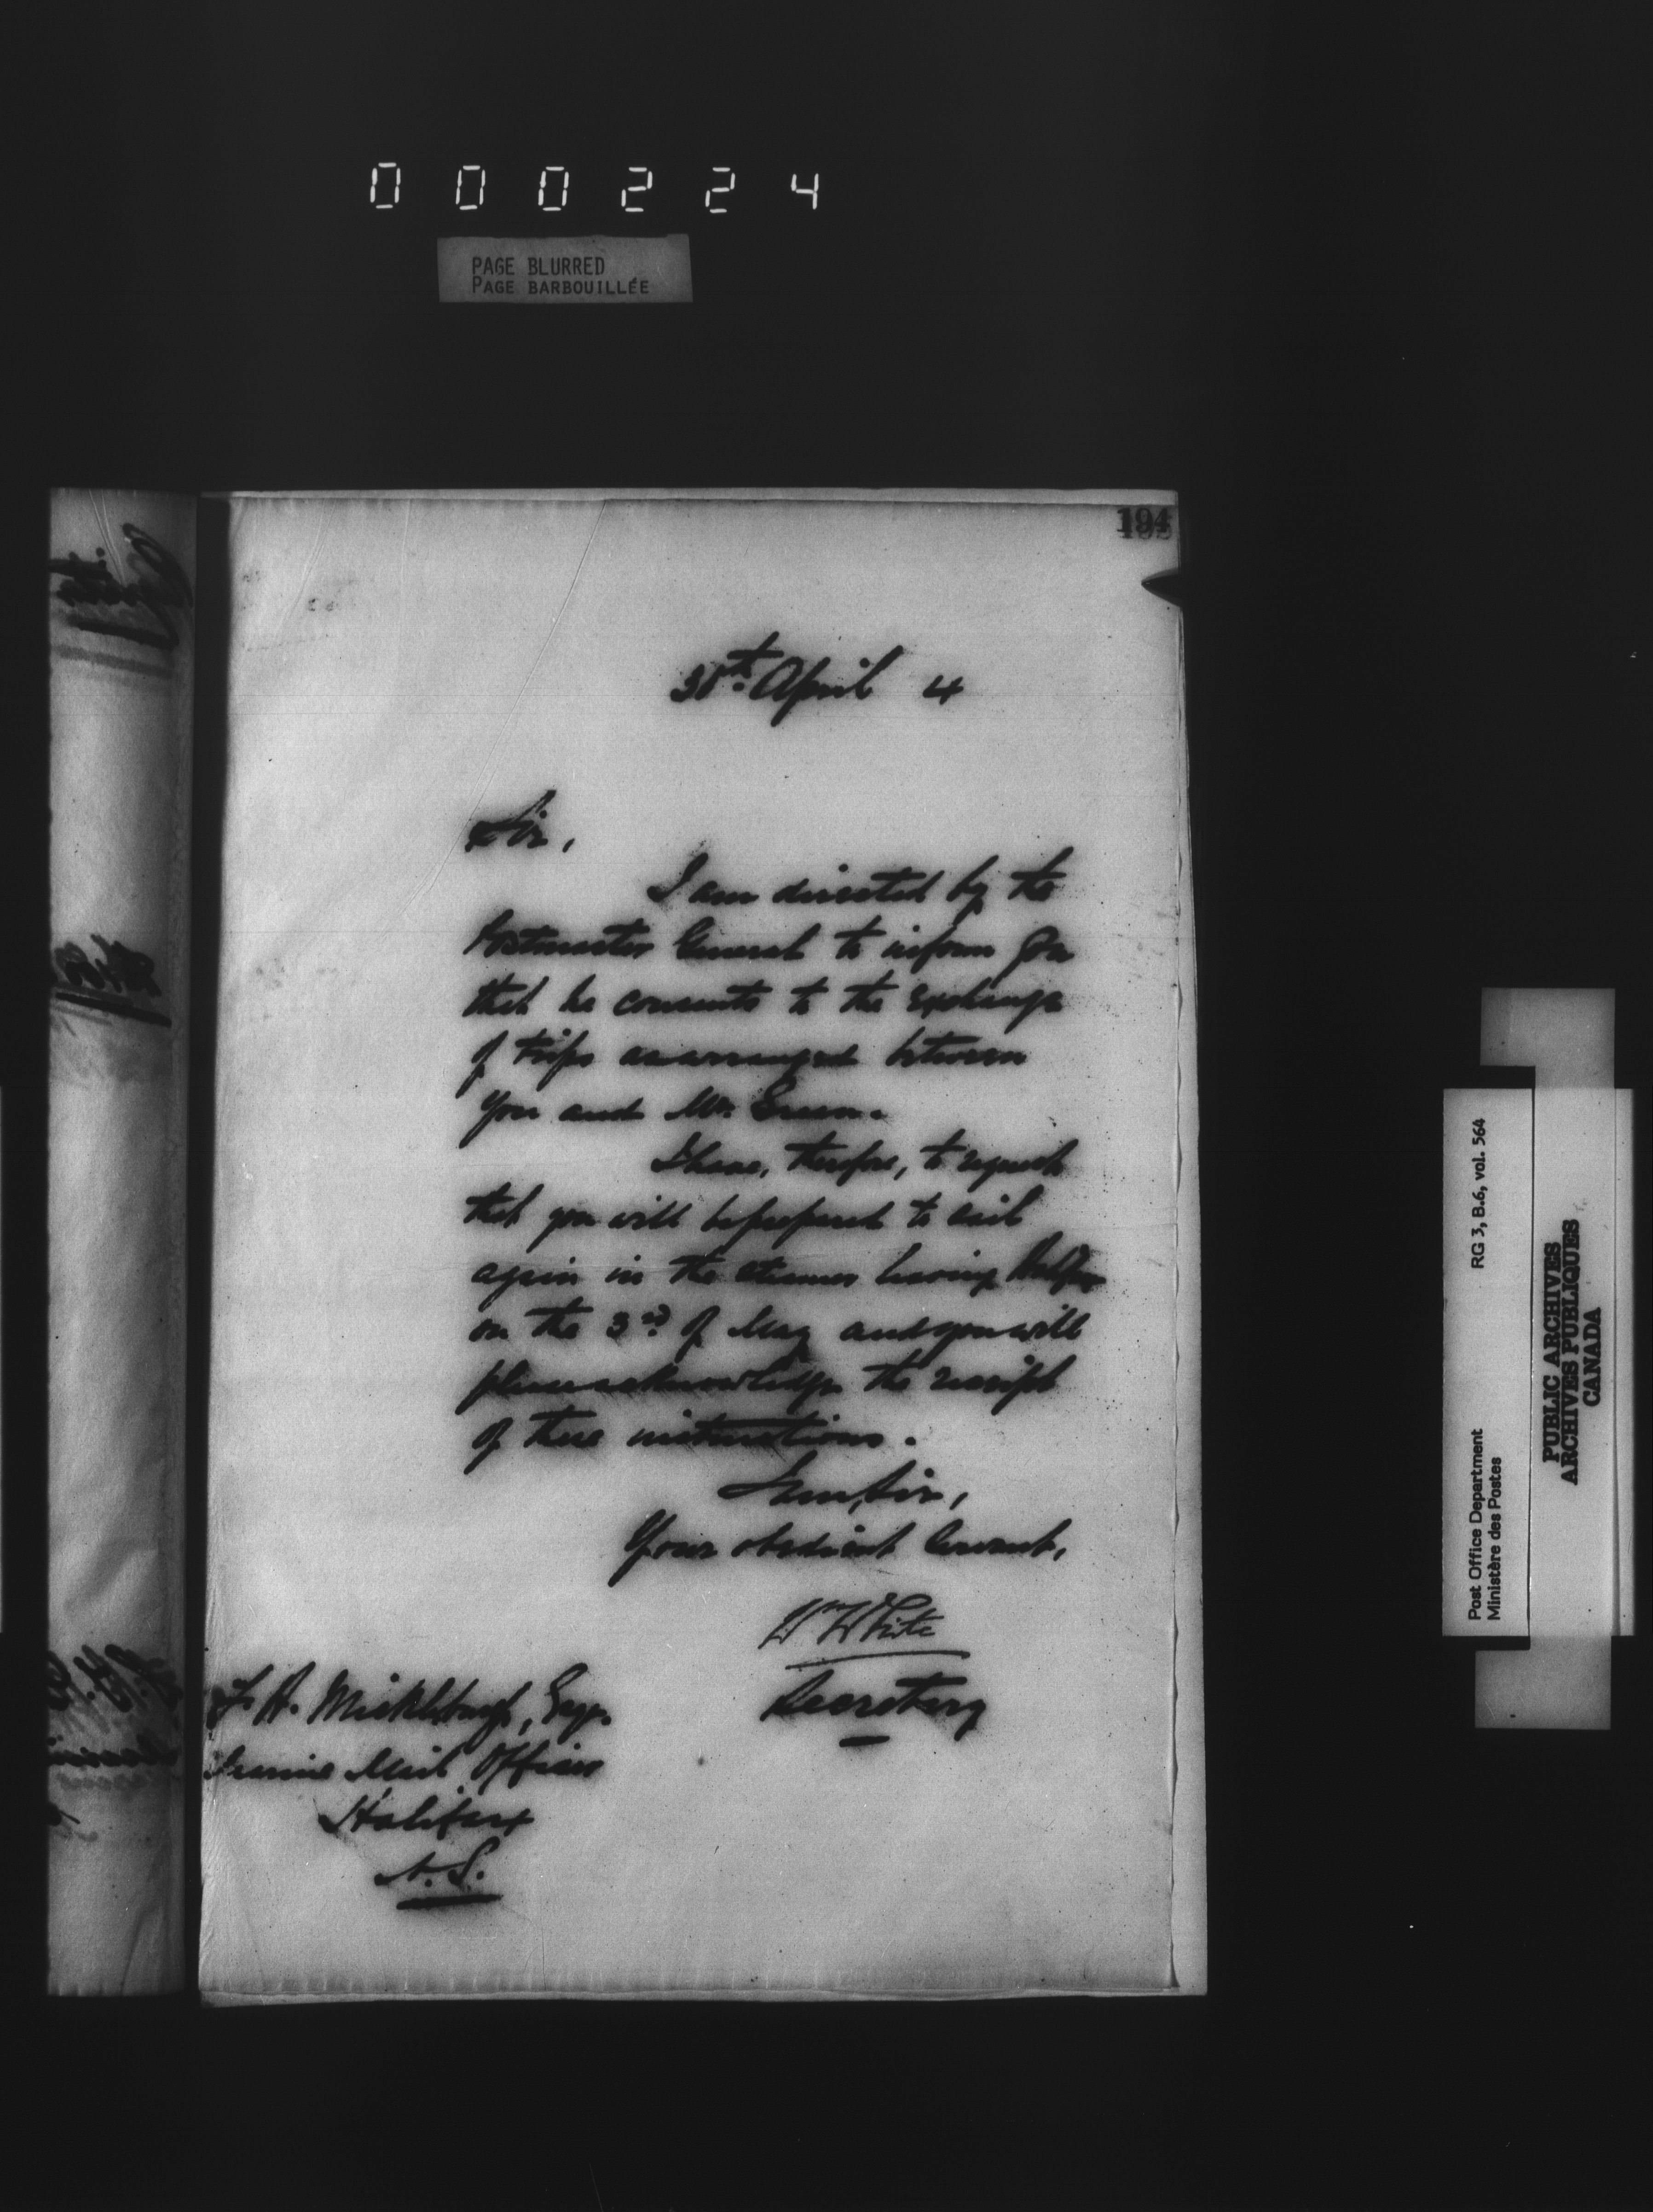 000224
PAGE BLURRED
PAGE BARBOUILLÉE
194
30th April 4
Sir,
I am directed by the
Postmaster General to inform you
that he consents to the exchange
of trips as arranged between
you and Mr. Green.
I have, therefore, to request
that you will be prepared to sail
again in the steamer leaving Halifax
on the 3rd of May and you will
please acknowledge the receipt
of these instructions.
I am, Sir,
Your obedient Servant,
Wm White
Secretary
F. A. Mickleburgh, Esqr.
Marine Mail Officer
Halifax
N.S.
RG 3, B.6, vol. 564
Post Office Department
Ministère des Postes
PUBLIC ARCHIVES
ARCHIVES PUBLIQUES
CANADA